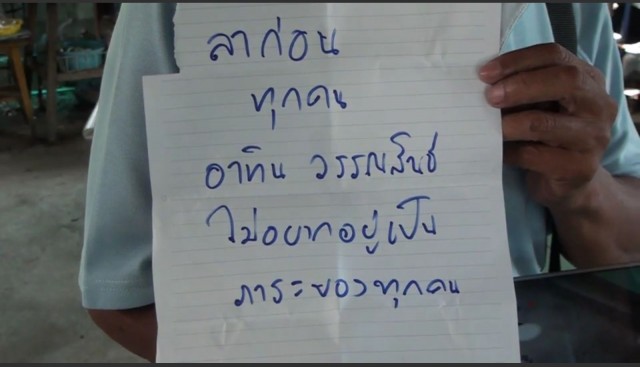 ลาก่อน
ทุกคน
อาทิน วรรณสินธ์
ไม่อยากอยู่เป็น
ภาระของทุกคน